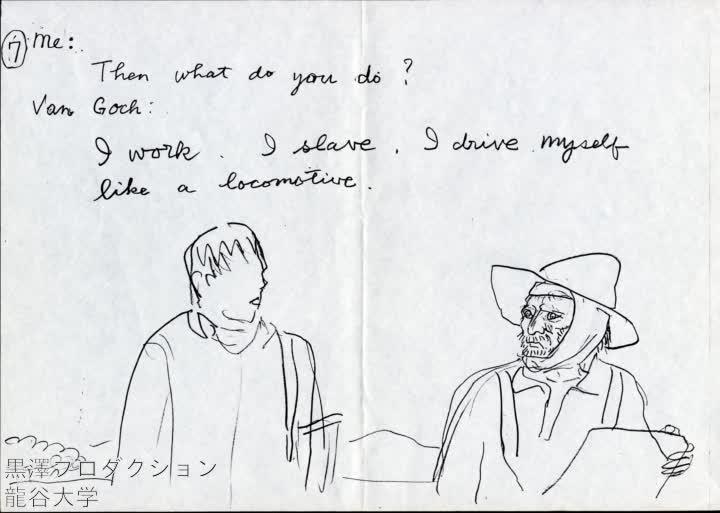 7 Me:
Then what do you do?
Van Goch:
I work. I slave. I drive myself
like a locomotive.
黒澤プロダクション
龍谷大学